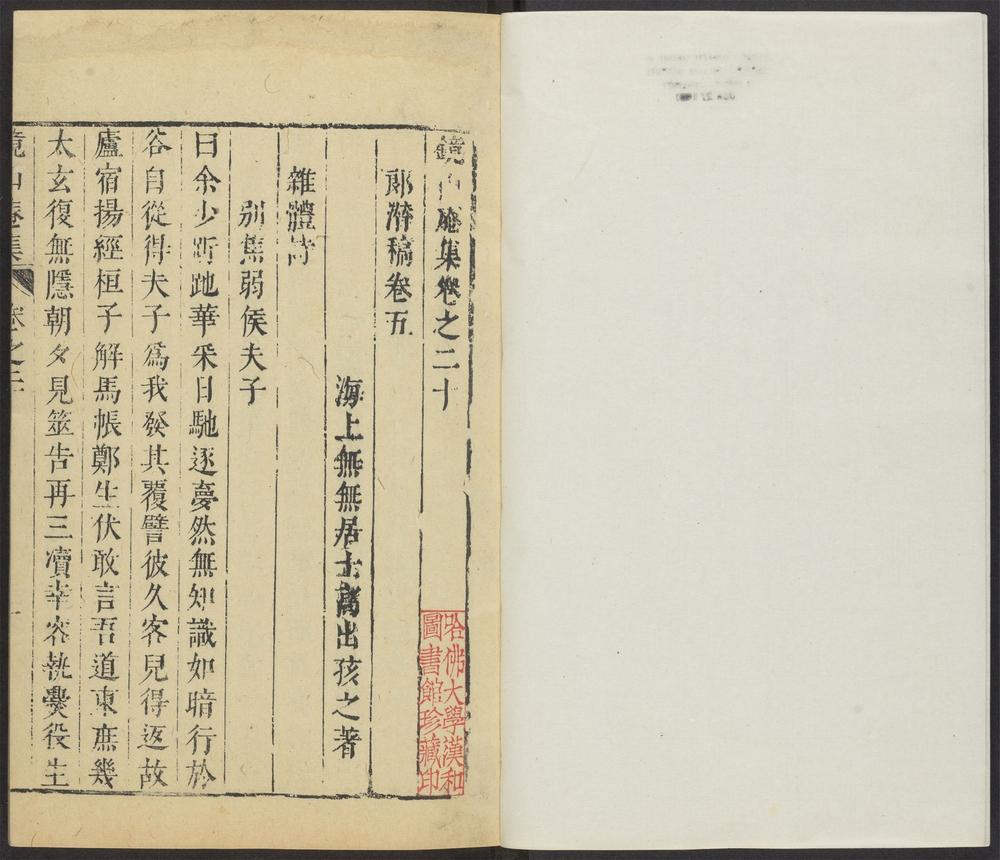 鏡山庵集卷之二十
郧漪稿卷五
海上無無居士高出孩之著
雜體詩
別焦弱侯夫子
曰余少跅跎華采日馳逐夢然無知識如暗行於
谷自從得夫子為我發其覆譬彼久客兒得返故
廬宿揚經桓子解馬帳鄭生伏敢言吾道東庶幾
太玄復無隱朝夕見筮告再三瀆幸容執爨役生
鏡山庵集
卷之二十
一
哈佛大學漢和
圖書館珍藏印